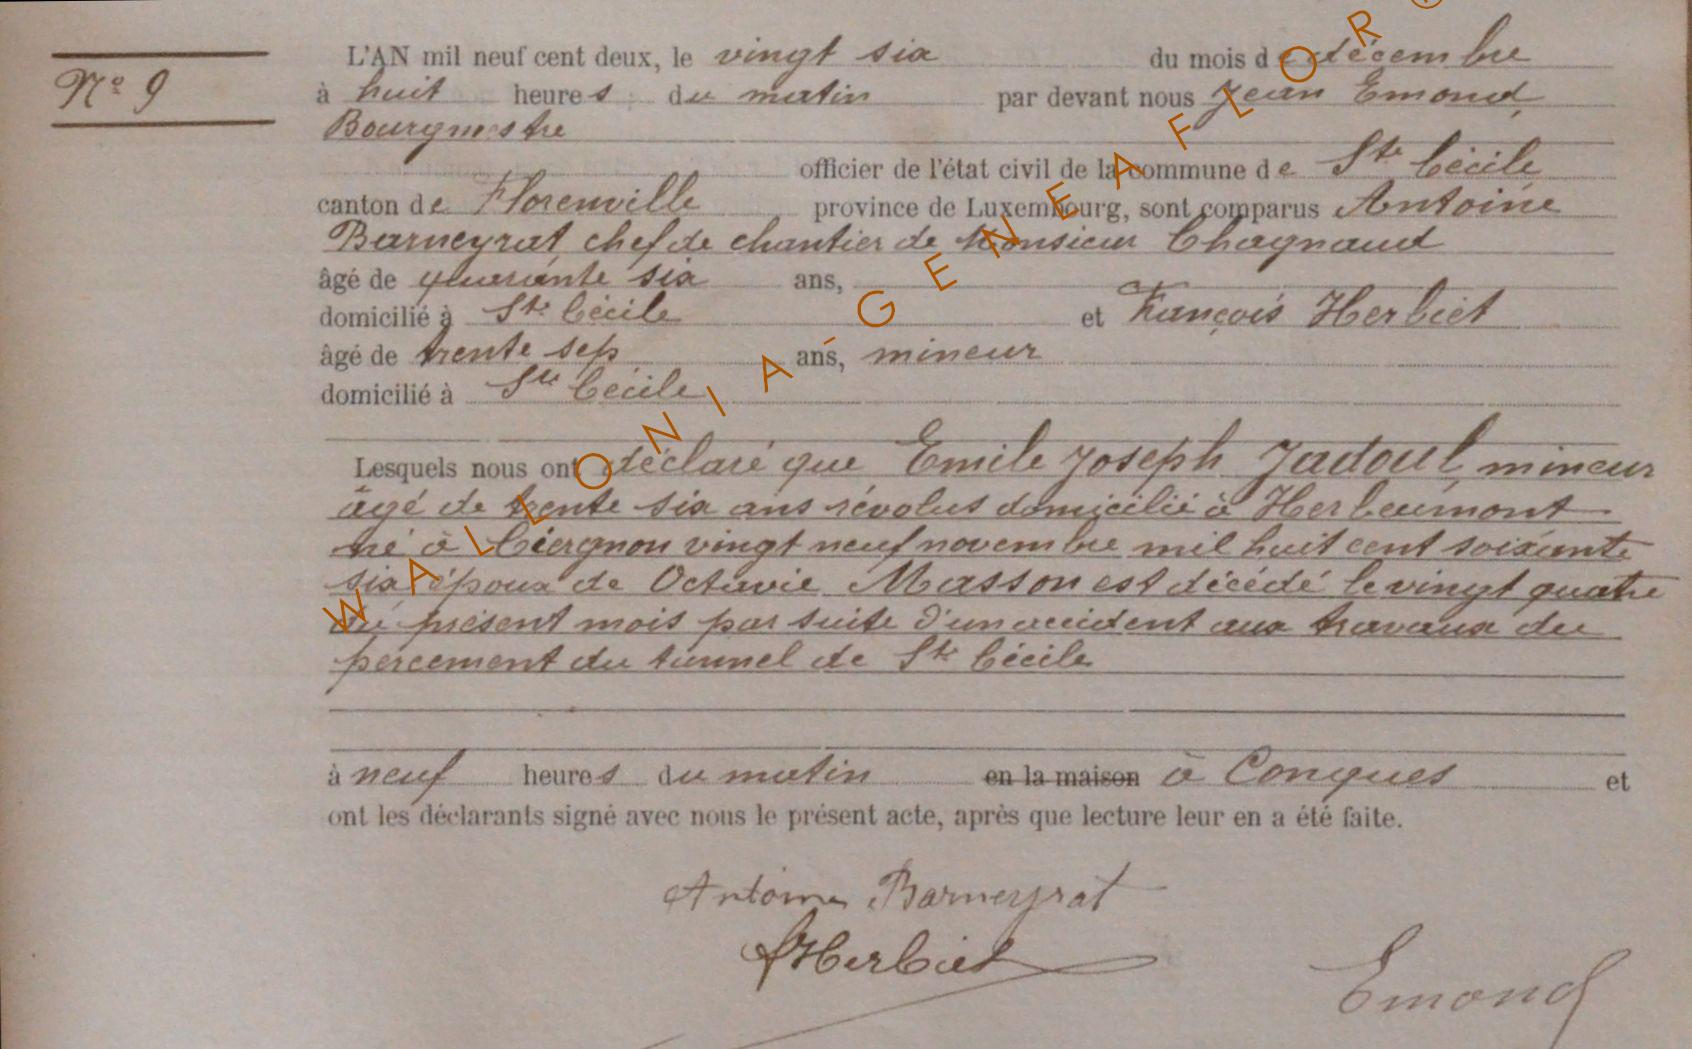 L'AN mil neuf cent deux, le vingt six du mois de décembre
N° 9
à huit heures du matin par devant nous Jean Emond,
Bourgmestre
officier de l'état civil de la commune de Ste Cécile
canton de Florenville province de Luxembourg, sont comparus Antoine
Barneyrat chef de chantier de Monsieur Chagnaud
âgé de quarante six ans,
domicilié à Ste Cécile et François Herbiet
âgé de trente sep ans, mineur
domicilié à Ste Cécile
Lesquels nous ont déclaré que Emile Joseph Jadoul, mineur
âgé de trente six ans révolus domicilié à Herbeumont
né à Ciergnon vingt neuf novembre mil huit cent soixante
six époux de Octavie Masson est décédé le vingt quatre
du présent mois par suite d'un accident aux travaux du
percement du tunnel de Ste Cécile
à neuf heures du matin en la maison à Conques et
ont les déclarants signé avec nous le présent acte, après que lecture leur en a été faite.
Antoine Barneyrat
FHerbiet
Emond
WALLONIA-GENEAFLOR©